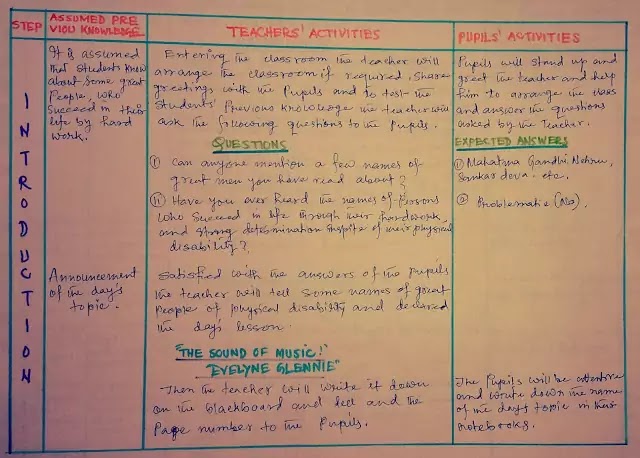 STEP
ASSUMED PRE
VIOU KNOWLEDGE
TEACHERS' ACTIVITIES
PUPILS' ACTIVITIES
INTRODUCTION
It is assumed
that students know
about some great
People, who
Succeed in their
life by hard
work.
Announcement
of the day's
topic.
Entering the classroom the teacher will
arrange the classroom if required, Share
greetings with the Pupils and to test the
Students' Previous knowledge the teacher will
ask the following questions to the Pupils.
QUESTIONS
(i) Can anyone mention a few names of
great men you have read about?
(ii) Have you ever heard the names of Persons
who Succeed in life through their hardwork,
and strong determination inspite of their physical
disability?
Satisfied with the answers of the pupils
the teacher will tell some names of great
People of physical disability and
the day's lesson.
"THE SOUND OF MUSIC!"
"EVELYNE GLENNIE"
Then the teacher will write it down
on the blackboard and tell and the
Page number to the Pupils.
Pupils will stand up and
greet the teacher and help
him to arrange the class
and answer the questions
asked by the Teacher.
EXPECTED ANSWERS
(i) Mahatma Gandhi, Nehru,
Sankardeva. etc.
(2) Problematic (No).
The Pupils will be attentive
and write down the name
of the day's topic in their
notebooks.